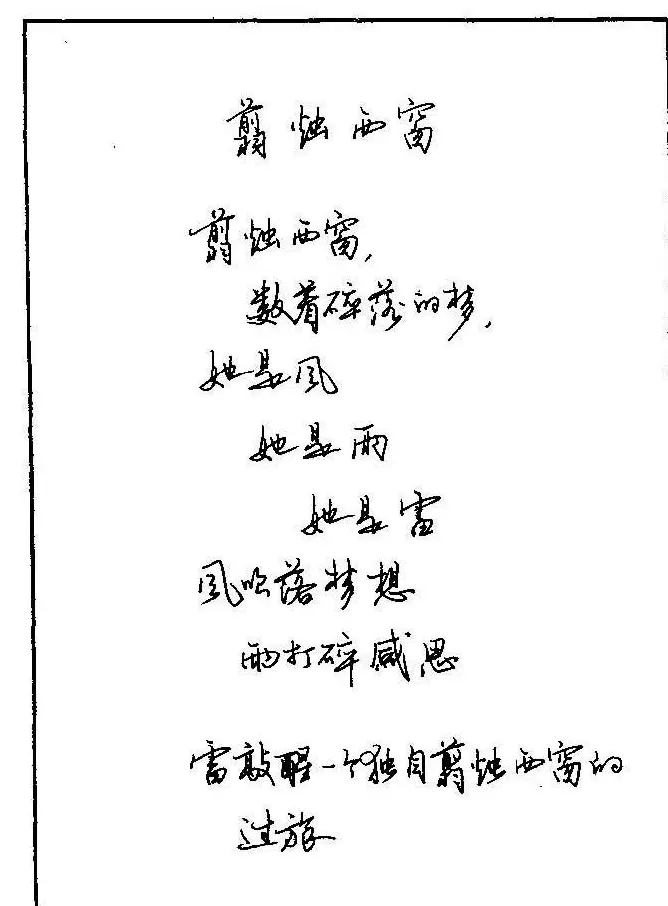 翦烛西窗
翦烛西窗,
数着碎落的梦,
她是风
她是雨
她是雷
风吹落梦想
雨打碎感恩
雷敲醒一个独自翦烛西窗的
过旅